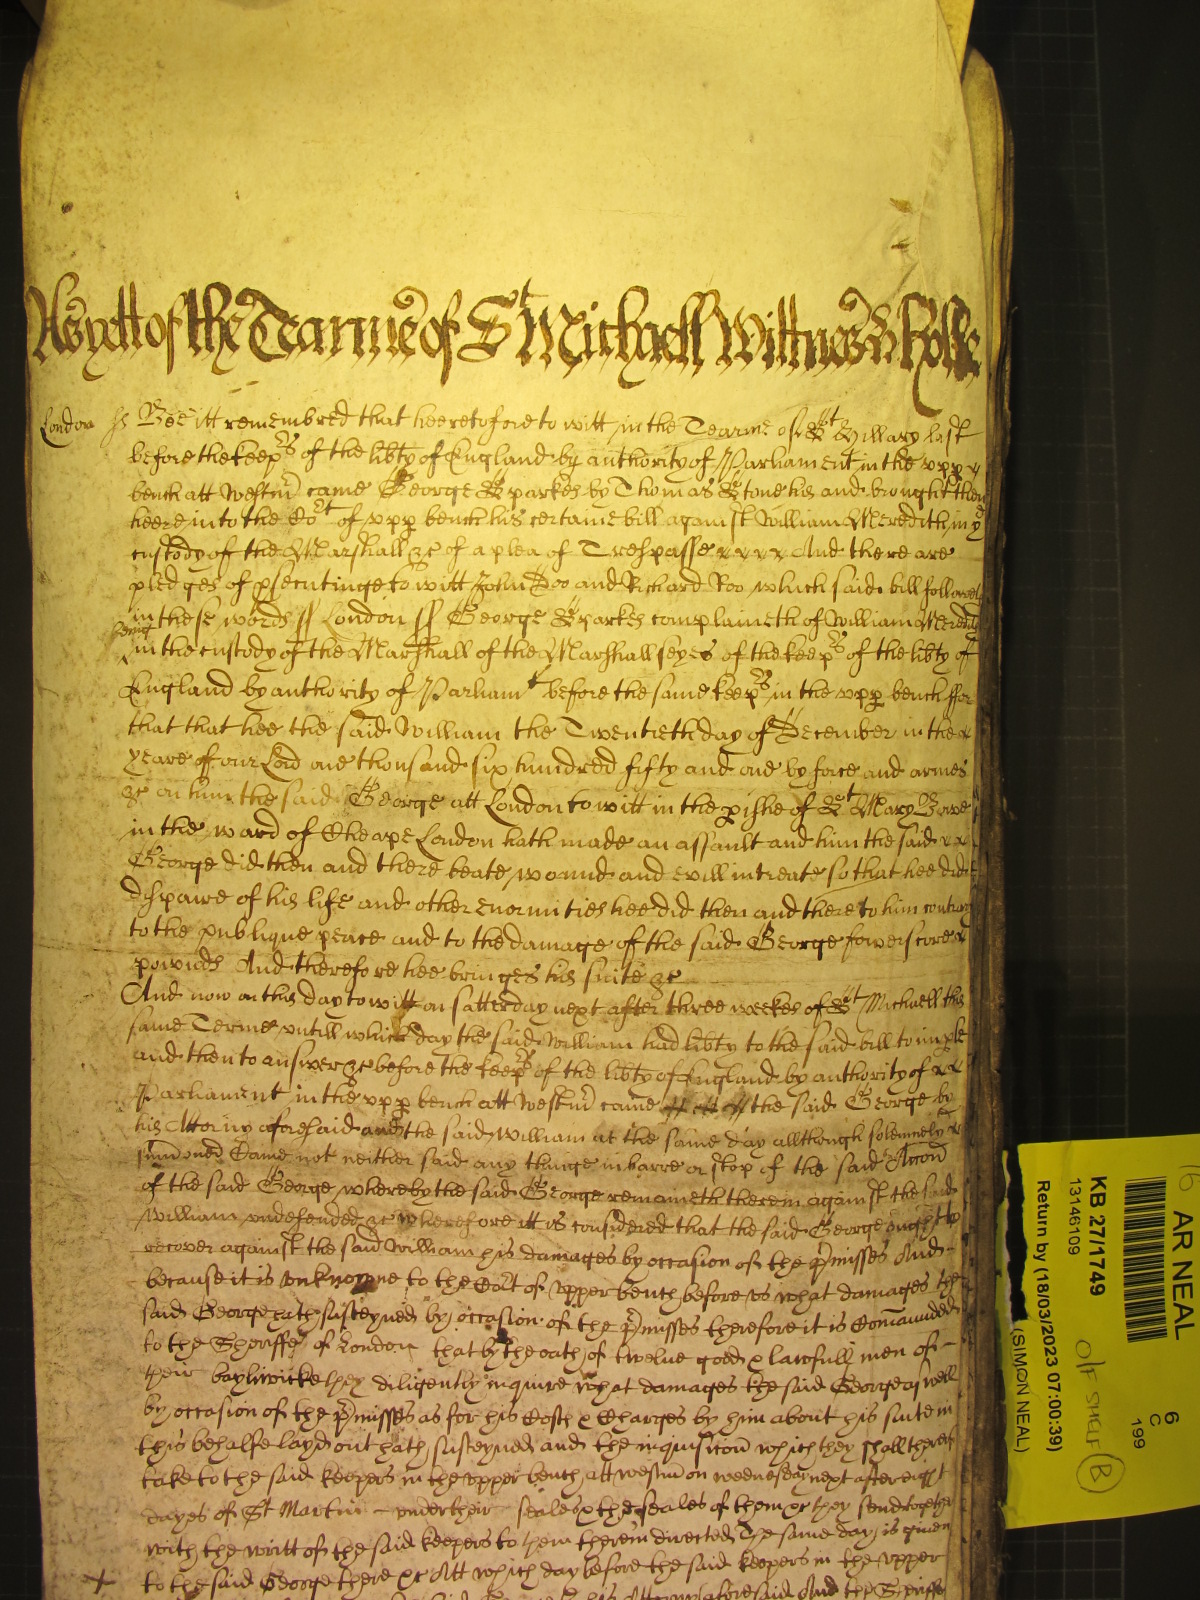 As yett of the Tearme of St Michaell Wittnes H Rolle
London ss Bee itt remembred that heeretofore to witt in the Tearme of St Hillary last
before the keeprs of the libty of England by authority of Parliament in the vpp
bench att Westmr came George Sparkes by Thomas Stone his and brought then
heere into the Cort of vpp bench his certaine bill against William Meredith in ye
custody of the Marshall &c of a plea of Trespasse And there are
pledges of psecutinge to witt John Doo and Richard Roo which said bill followeth
in these words ss London ss George Sparkes complaineth of William Meredith
being
in the custody of the Marshall of the Marshallseyes of the keeprs of the libty of
England by authority of Parliamt before the same keeprs in the vpp bench ffor
that that hee the said William the Twentieth day of December in the
yeare of our Lord one thousand six hundred fifty and one by force and armes
&c on him the said George att London to witt in the pishe of St Mary Bowe
in the ward of Cheape London hath made an assault and him the said
George did then and there beate wound and evill intreate so that hee did
dispaire of his life and other enormities hee did then and there to him contrary
to the publique peace and to the damage of the said George fowerscore
pownds And therefore hee bringes his suite &c
And now on this day to witt on satterday next after three weekes of St Michaell this
same Terme vntill which day the said William had libty to the said bill to imple
and then to answer &c before the keeprs of the libty of England by authority of
Parliament in the vpp bench att Westmr came the said George by
his Attorny aforesaid and the said William at the same day allthough solemnely
sumoned Came not neither said any thinge in barre or stop of the said Accon
of the said George whereby the said George remaineth therein against the said
William vndefended &c wherefore itt is considered that the said George ought to
recover against the said William his damages by occasion of the pmisses And
because it is vnknowne to the Cort of vpper bench before vs what damages the
said George hath susteyned by occasion of the pmisses therefore it is Comaunded
to the Sheriffes of London that by the oath of twelve good & lawfull men of
their bayliwicke they diligently inquire what damages the said George as well
by occasion of the pmisses as for his Costs & Charges by him about his suite in
this behalfe layd out hath susteyned and the inquisicon which they shall thereof
take to the said keepers in the vpper bench att westmr on wednesday next after eight
dayes of St Martin vnder their seales & the seales of them &c they send together
with the writt of the said keepers to them therein directed The same day is given
to the said George there &c Att which day before the said keepers in the vpper
his Attorny aforesaid And the Sheriffes
AR NEAL
KB 27/1749
13146109
Return by (18/03/2023 07:00:39)
(SIMON NEAL)
6
C
199
O/F SHELF B
16